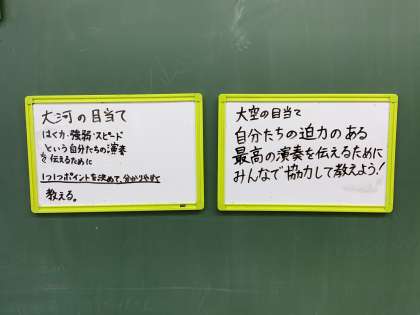 大河の目当て
はく力・強弱・スピード
という自分たちの演奏
を伝えるために
1つ1つポイントを決めて、分かりやすく
教える。
大空の目当て
自分たちの迫力のある
最高の演奏を伝えるために
みんなで協力して教えよう!